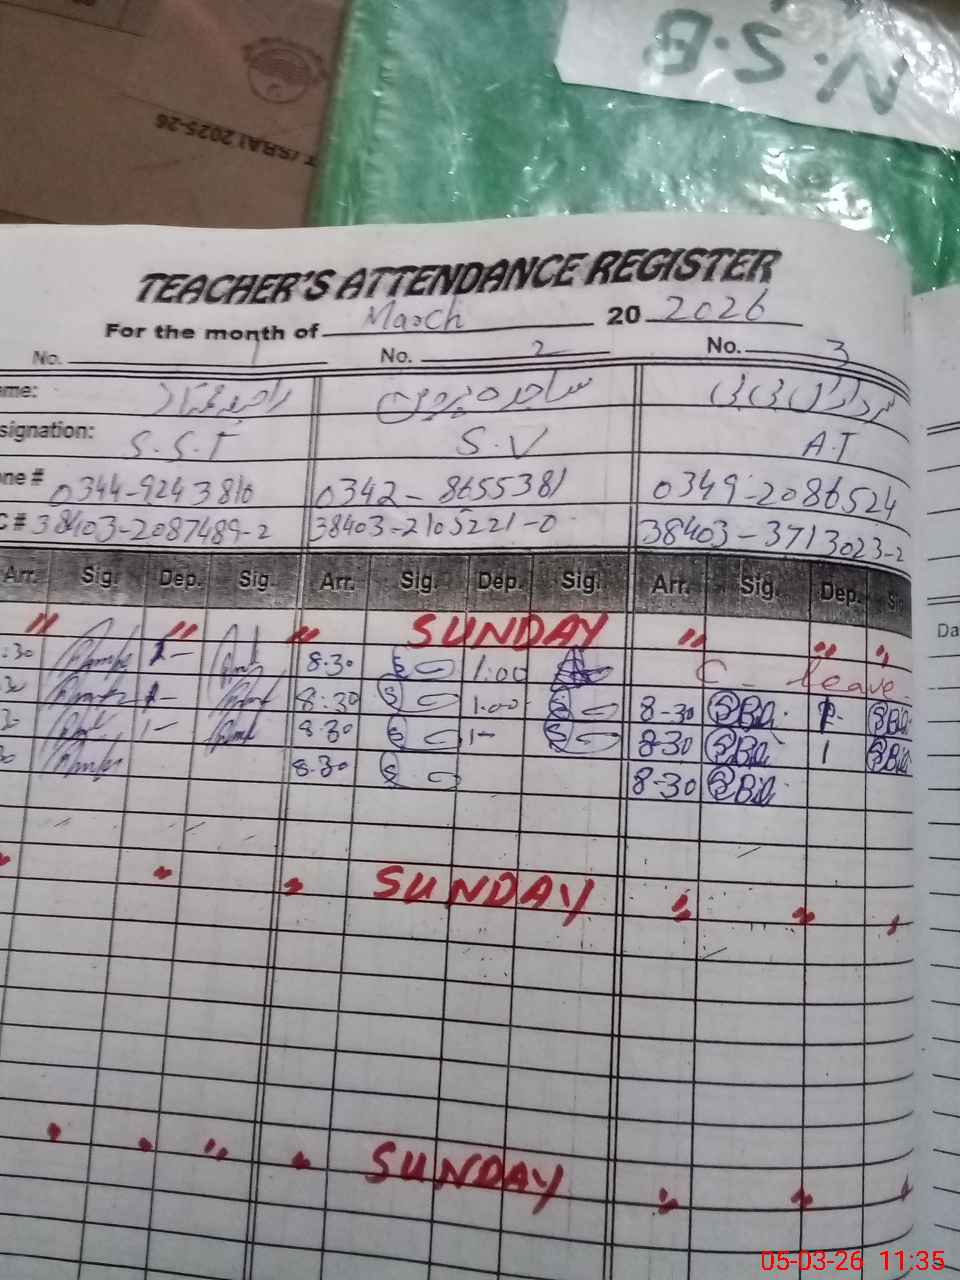 N.S.B
T (SRA) 2025-26
TEACHER'S ATTENDANCE REGISTER
For the month of March 20 2026
No. 1 No. 2 No. 3
ame: ساجده پروین
signation: S.S.T S.V A.T
one # 0344-9243810 0342-8655381 0349-2086524
C # 38403-2087489-2 38403-2105221-0 38403-3713023-2
Arr. Sig. Dep. Sig. Arr. Sig. Dep. Sig. Arr. Sig. Dep. Sig
" " " SUNDAY " " "
:30 1- 8.30 1:00 C- leave
30 1- 8:30 1:00 8-30 Bili 1-
30 1- 8:30 1- 8-30 Bili 1 Bili
30 8.30 8-30 Bili
" " " SUNDAY " " "
" " " " SUNDAY " " "
Da
05-03-26 11:35